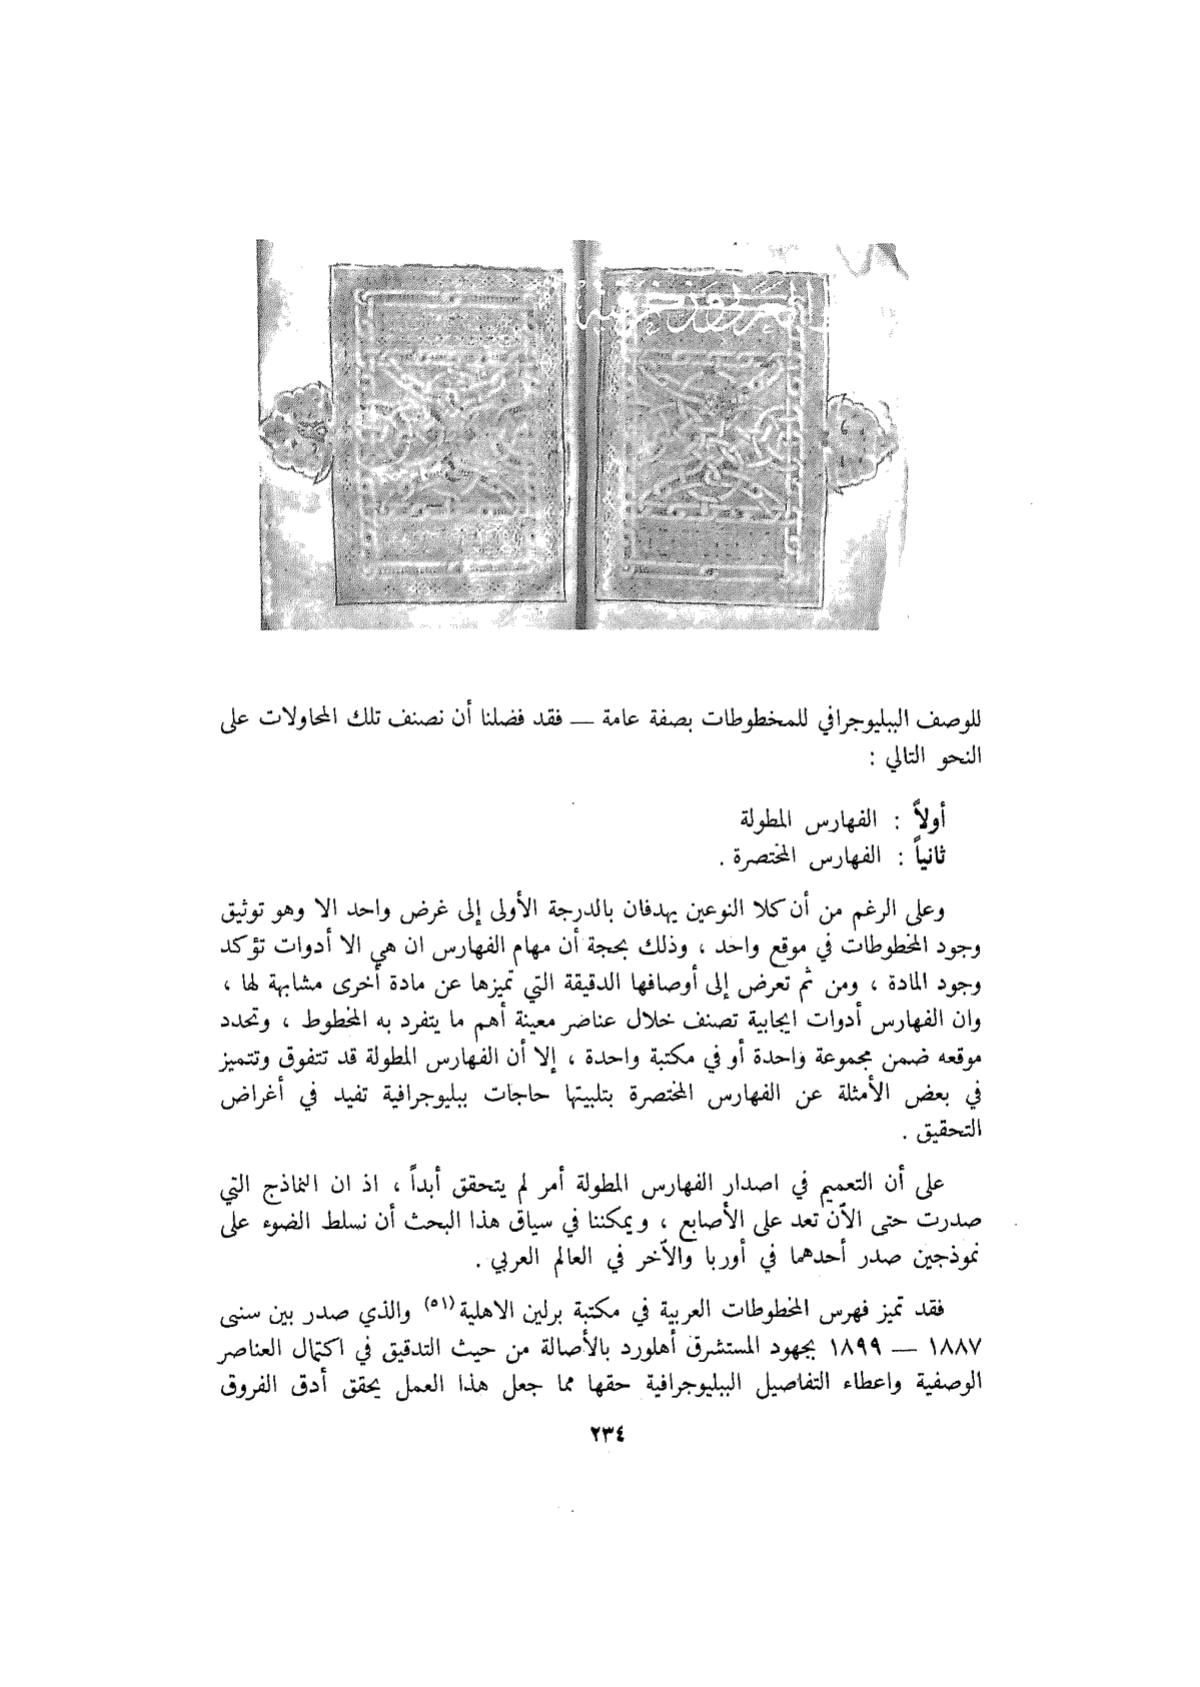 للوصف الببليوجرافي للمخطوطات بصفة عامة — فقد فضلنا أن نصنف تلك المحاولات على
النحو التالي :
أولاً : الفهارس المطولة
ثانياً : الفهارس المختصرة .
وعلى الرغم من أن كلا النوعين يهدفان بالدرجة الأولى إلى غرض واحد الا وهو توثيق
وجود المخطوطات في موقع واحد ، وذلك بحجة أن مهام الفهارس ان هي الا أدوات تؤكد
وجود المادة ، ومن ثم تعرض إلى أوصافها الدقيقة التي تميزها عن مادة أخرى مشابهة لها ،
وان الفهارس أدوات ايجابية تصنف خلال عناصر معينة أهم ما يتفرد به المخطوط ، وتحدد
موقعه ضمن مجموعة واحدة أو في مكتبة واحدة ، إلا أن الفهارس المطولة قد تتفوق وتتميز
في بعض الأمثلة عن الفهارس المختصرة بتلبيتها حاجات ببليوجرافية تفيد في أغراض
التحقيق .
على أن التعميم في اصدار الفهارس المطولة أمر لم يتحقق أبداً ، اذ ان النماذج التي
صدرت حتى الآن تعد على الأصابع ، ويمكننا في سياق هذا البحث أن نسلط الضوء على
نموذجين صدر أحدهما في أوربا والآخر في العالم العربي .
فقد تميز فهرس المخطوطات العربية في مكتبة برلين الاهلية (٥١) والذي صدر بين سنى
١٨٨٧ — ١٨٩٩ بجهود المستشرق أهلورد بالأصالة من حيث التدقيق في اكتمال العناصر
الوصفية واعطاء التفاصيل الببليوجرافية حقها مما جعل هذا العمل يحقق أدق الفروق
٢٣٤